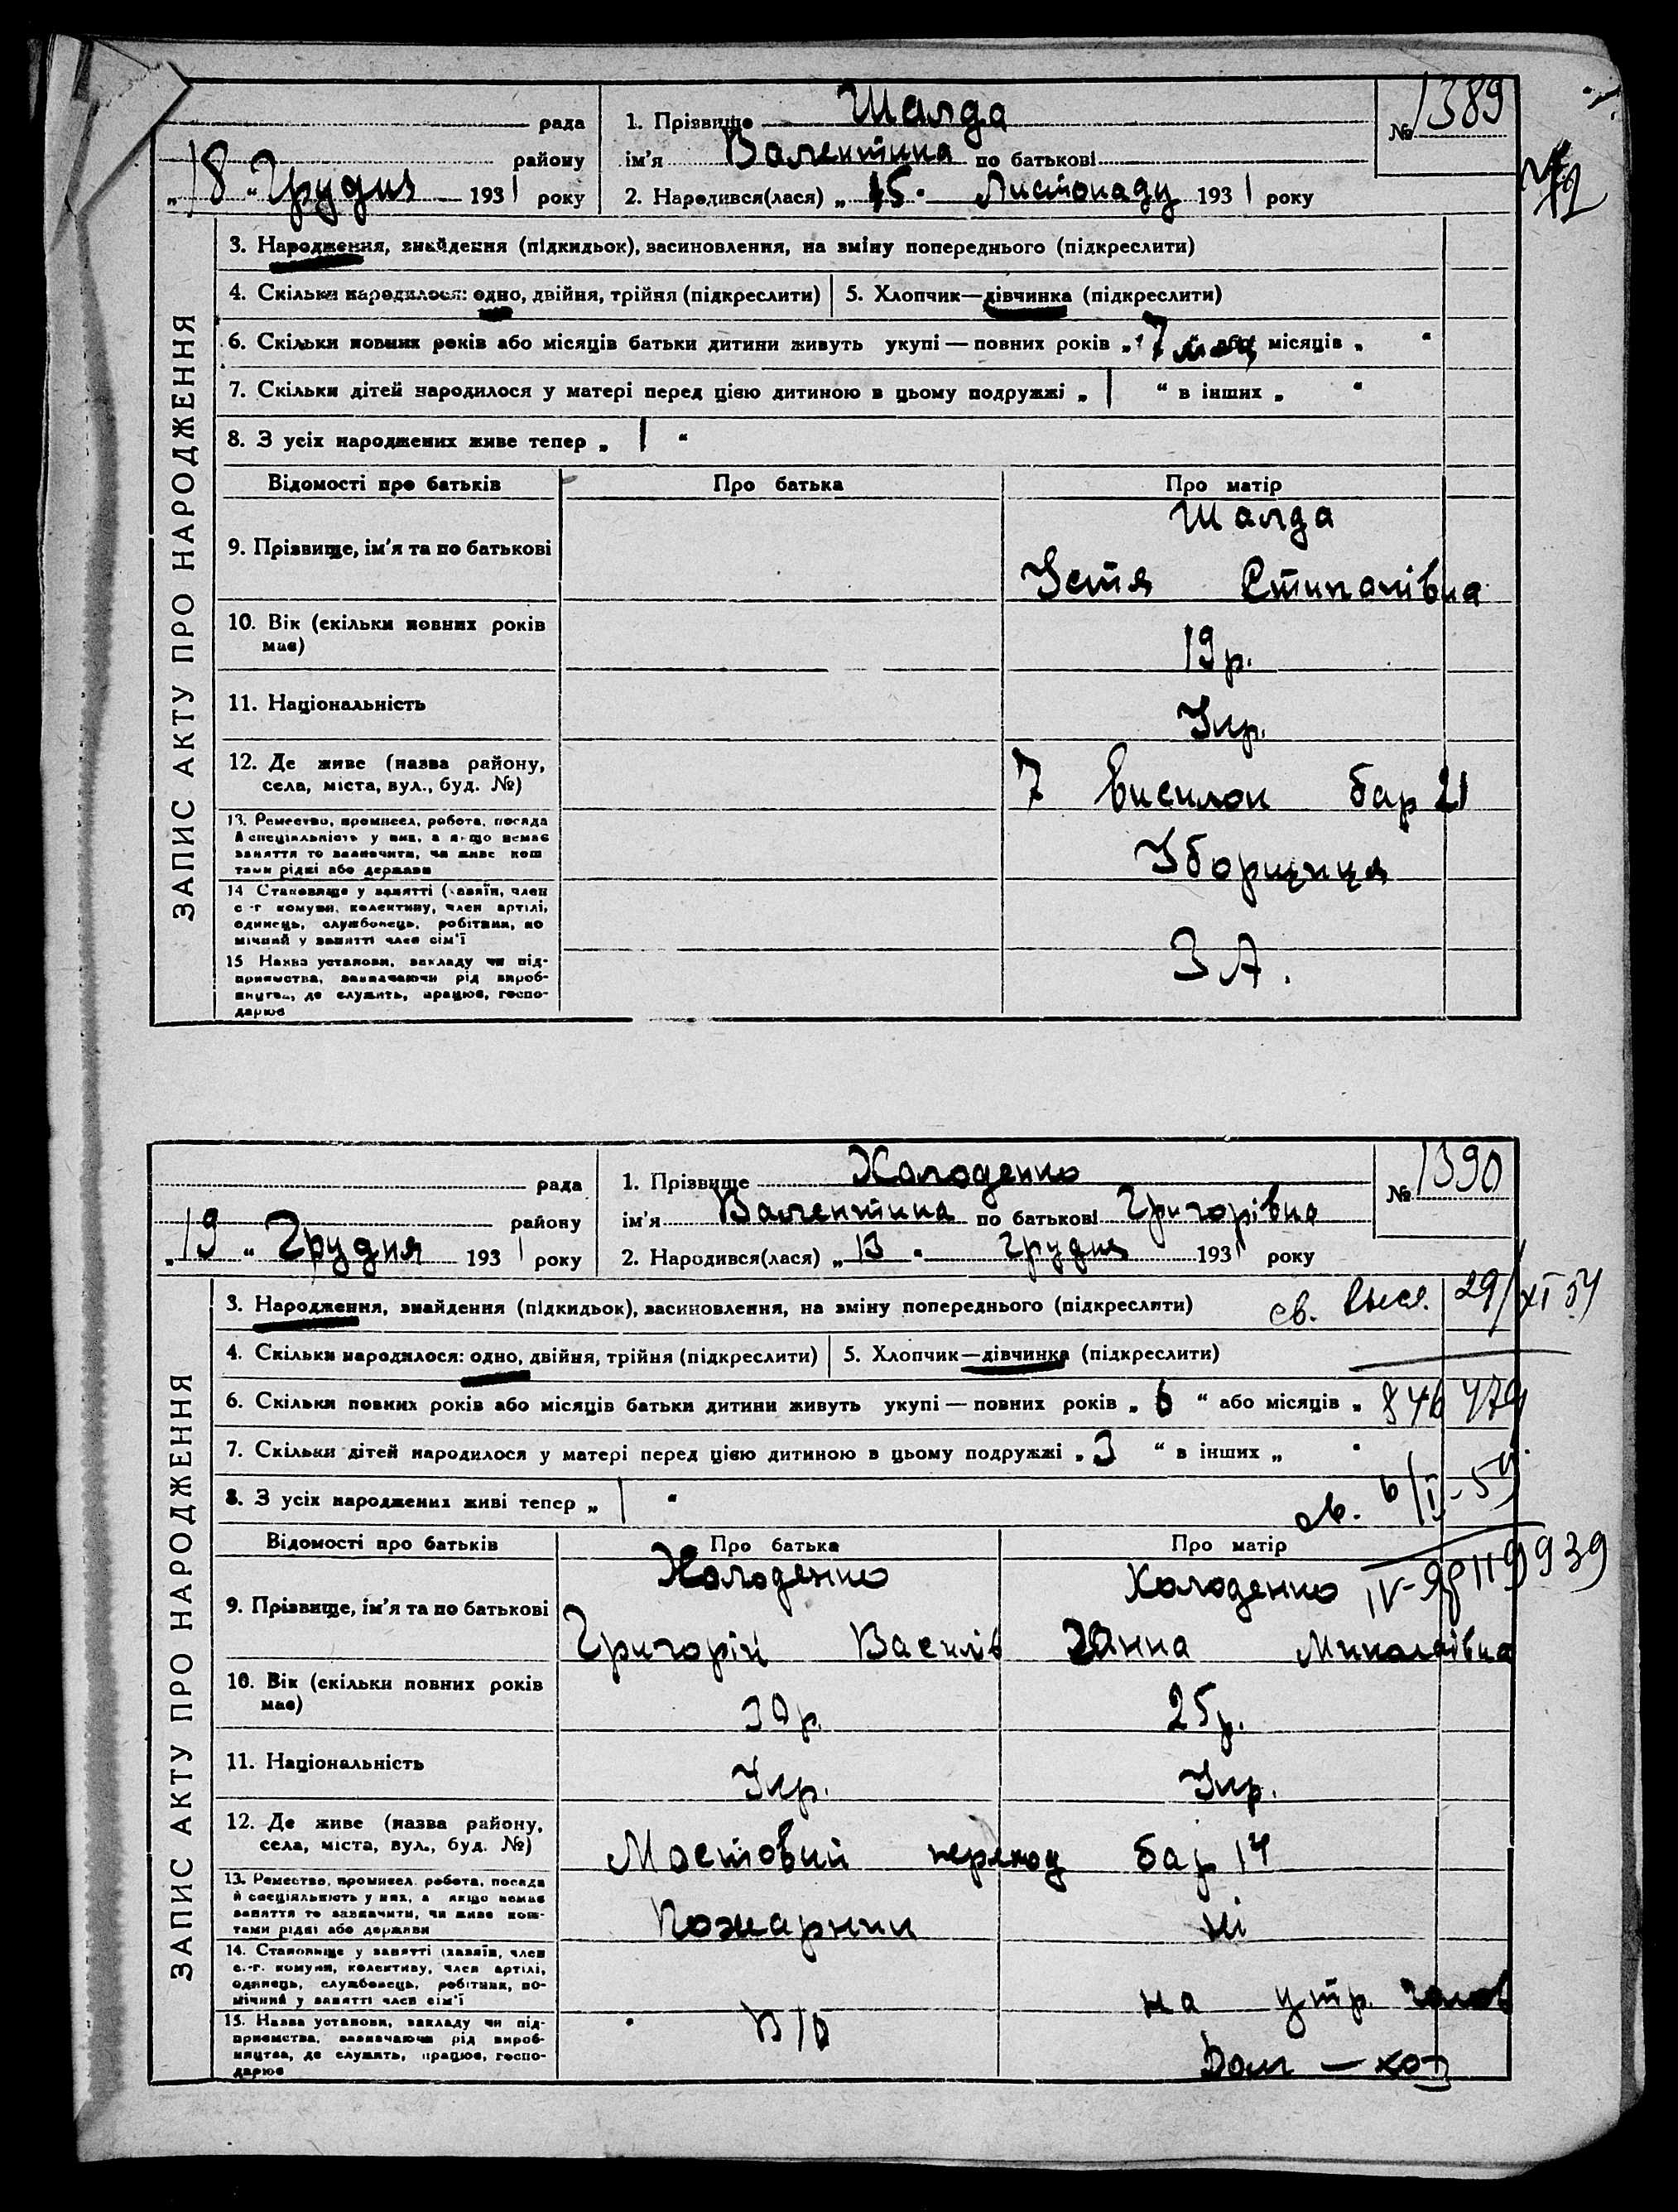 ЗАПИС АКТУ ПРО НАРОДЖЕННЯ
рада
району
„18“ Грудня 1931 року
1. Прізвище Шалда
ім'я Валентина по батькові
2. Народився(лася) „15“ Листопаду 1931 року
№ 1389
3. Народження, знайдення (підкидьок), засиновлення, на зміну попереднього (підкреслити)
4. Скільки народилося: одно, двійня, трійня (підкреслити)
5. Хлопчик—дівчинка (підкреслити)
6. Скільки повних років або місяців батьки дитини живуть укупі — повних років „7 або місяців „ “
7. Скільки дітей народилося у матері перед цією дитиною в цьому подружжі „1 “ в інших „ “
8. З усіх народжених живе тепер „1 “
Відомості про батьків
Про батька
Про матір
9. Прізвище, ім'я та по батькові
Шалда
Устя Стипанівна
10. Вік (скільки повних років має)
19 р.
11. Національність
Укр.
12. Де живе (назва району, села, міста, вул., буд. №)
7 Висилок бар 21
13. Ремество, промисел, робота, посада й спеціальність у них, а якщо немає заняття то зазначити, чи живе коштами рідні або держави
Уборщиця
14 Становище у занятті (хазяїн, член с.-г комуни, колективу, член артілі, одинець, службовець, робітник, помічний у занятті член сім'ї
15 Назва установи, закладу чи підприємства, зазначаючи рід виробництва, де служить, працює, господарює
З А.
ЗАПИС АКТУ ПРО НАРОДЖЕННЯ
рада
району
„19“ Грудня 1931 року
1. Прізвище Холоденко
ім'я Валентина по батькові Григорівна
2. Народився(лася) „13“ Грудня 1931 року
№ 1390
3. Народження, знайдення (підкидьок), засиновлення, на зміну попереднього (підкреслити)
св. высл. 29/XI 54
4. Скільки народилося: одно, двійня, трійня (підкреслити)
5. Хлопчик—дівчинка (підкреслити)
6. Скільки повних років або місяців батьки дитини живуть укупі — повних років „6 “ або місяців „
7. Скільки дітей народилося у матері перед цією дитиною в цьому подружжі „3 “ в інших „ “
8. З усіх народжених живі тепер „1 “
Відомості про батьків
Про батька
Про матір
9. Прізвище, ім'я та по батькові
Холоденко
Григорій Василів
Холоденко
Ханна Миколаївна
10. Вік (скільки повних років має)
30 р.
25 р.
11. Національність
Укр.
Укр.
12. Де живе (назва району, села, міста, вул., буд. №)
Мостовий переход бар 14
13. Ремество, промисел, робота, посада й спеціяльність у них, а якщо немає заняття то зазначити, чи живе коштами рідні або держави
Пожарник
ні
14. Становище у занятті (хазяїн, член с.-г. комуни, колективу, член артілі, одинець, службовець, робітник, помічний у занятті член сім'ї
на утр. чолов
15. Назва установи, закладу чи підприємства, зазначаючи рід виробництва, де служить, працює, господарює
Дом — хоз